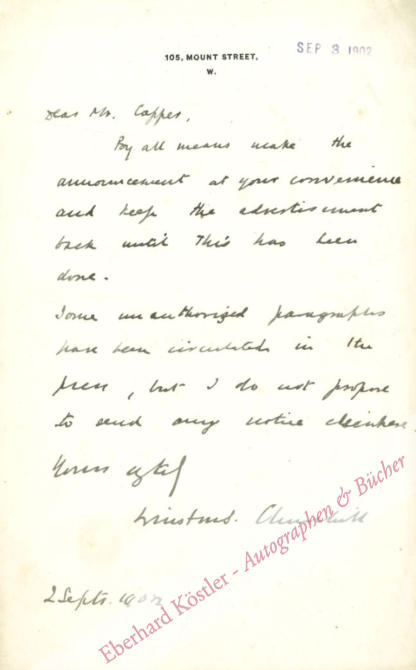 105, MOUNT STREET,
W.
SEP 3 1902
Dear Mr. Capper,
By all means make the
announcement at your convenience
and keep the advertisement
back until This has been
done.
Some unauthorized paragraphs
have been circulated in the
press, but I do not propose
to send any notice elsewhere.
Yours
Winston S. Churchill
2 Septr. 1902
Eberhard Köstler - Autographen & Bücher